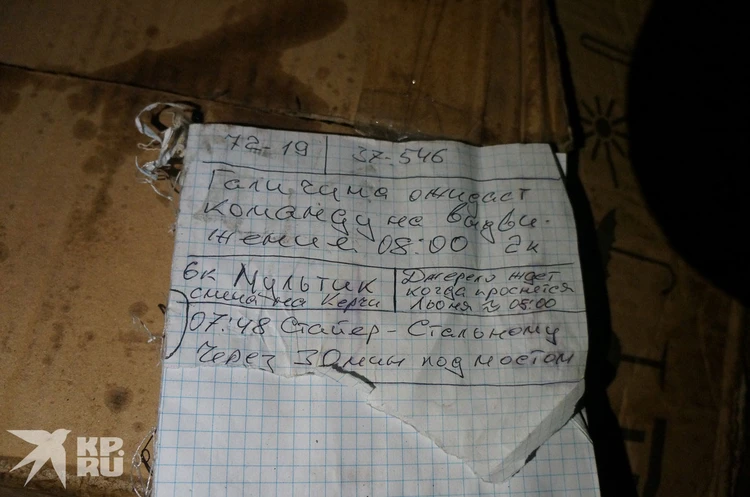 72-19 37-546
Галичина ожидает
команду на выдви-
жения 08:00 2к
6к Мультик
смена на Керчи
Джерело ждет
когда проснётся
Лёня ≈ 08:00
07:48 Стайер - Стальному
Через 30 мин под мостом
KP.RU